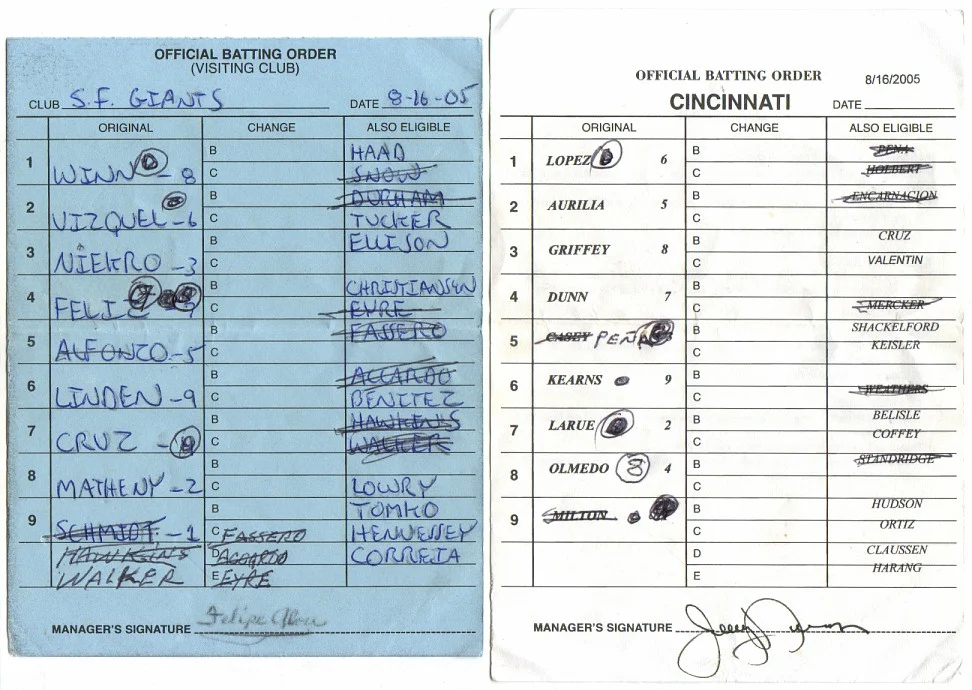 OFFICIAL BATTING ORDER
(VISITING CLUB)
CLUB S.F. GIANTS DATE 8-16-05
ORIGINAL CHANGE ALSO ELIGIBLE
1 WINN - 8 B C HAAD SNOW
2 VIZQUEL - 6 B C DURHAM TUCKER
3 NIEKRO - 3 B C ELLISON
4 FELIZ 7 B C CHRISTIANSEN EYRE
5 ALFONZO - 5 B C FASSERO
6 LINDEN - 9 B C ACCARDO BENITEZ
7 CRUZ - B C HAWKINS WALKER
8 MATHENY - 2 B C LOWRY
9 SCHMIDT - 1 B C FASSERO TOMKO HENNESSEY
HAWKINS D ACCARDO CORREIA
WALKER E EYRE
MANAGER'S SIGNATURE Felipe Alou
OFFICIAL BATTING ORDER 8/16/2005
CINCINNATI DATE
ORIGINAL CHANGE ALSO ELIGIBLE
1 LOPEZ 6 B C PENA HOLBERT
2 AURILIA 5 B C ENCARNACION
3 GRIFFEY 8 B C CRUZ VALENTIN
4 DUNN 7 B C MERCKER
5 CASEY PEÑA B C SHACKELFORD KEISLER
6 KEARNS 9 B C WEATHERS
7 LARUE 2 B C BELISLE COFFEY
8 OLMEDO 8 4 B C STANDRIDGE
9 MILTON B C HUDSON ORTIZ
D CLAUSSEN
E HARANG
MANAGER'S SIGNATURE